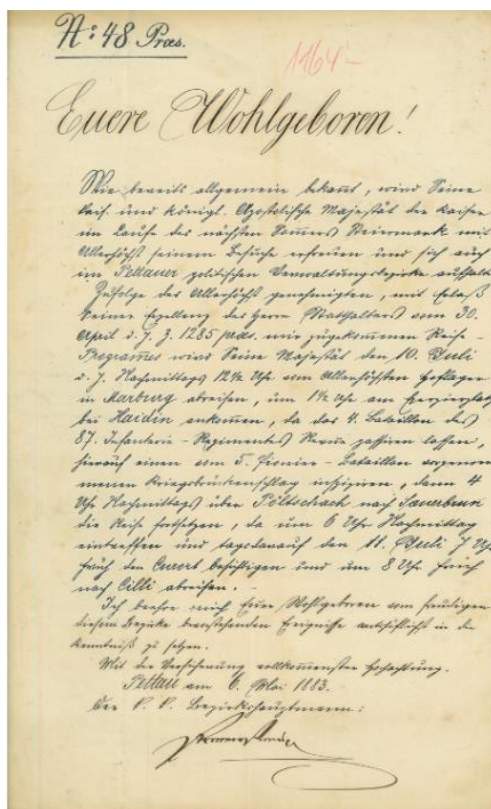 No: 48 Præs.
1164 –
Euere Wohlgeboren!
Wie bereits allgemein bekannt, wird Seine
kais. und königl. Apostolische Majestät der Kaiser
im Laufe des nächsten Sommers Steiermark mit
Allerhöchst seinem Besuche erfreuen und sich auch
im Pettauer politischen Verwaltungsbezirke aufhalten
Zufolge des Allerhöchst genehmigten, mit Erlaß
Seiner Exzellenz des Herrn Statthalters vom 30.
April d. J. Z. 1285 præs. mir zugekommenen Reise-
Programmes wird Seine Majestät den 10. Juli
d. J. Nachmittags 12½ Uhr vom Allerhöchsten Hoflager
in Marburg abreisen, um 1½ Uhr am Exerzierplatz
bei Haidin ankommen, da das 4. Bataillon des
87. Infanterie-Regimentes Revue passiren lassen,
hierauf einen vom 5. Pionier-Bataillon vorgenom-
menen Kriegsbrückenschlag inspiziren, dann 4
Uhr Nachmittags über Pöltschach nach Sauerbrunn
die Reise fortsetzen, da um 6 Uhr Nachmittag
eintreffen und tagsdarauf den 11. Juli 7 Uhr
früh den Curort besichtigen und um 8 Uhr früh
nach Cilli abreisen. –
Ich beehre mich Euer Wohlgeboren vom freudigen
diesem Bezirke bevorstehenden Ereignisse in die
Kenntniß zu setzen.
Mit der Versicherung vollkommenster Hochachtung.
Pettau am 6. Mai 1883.
Der k. k. Bezirkshauptmann: